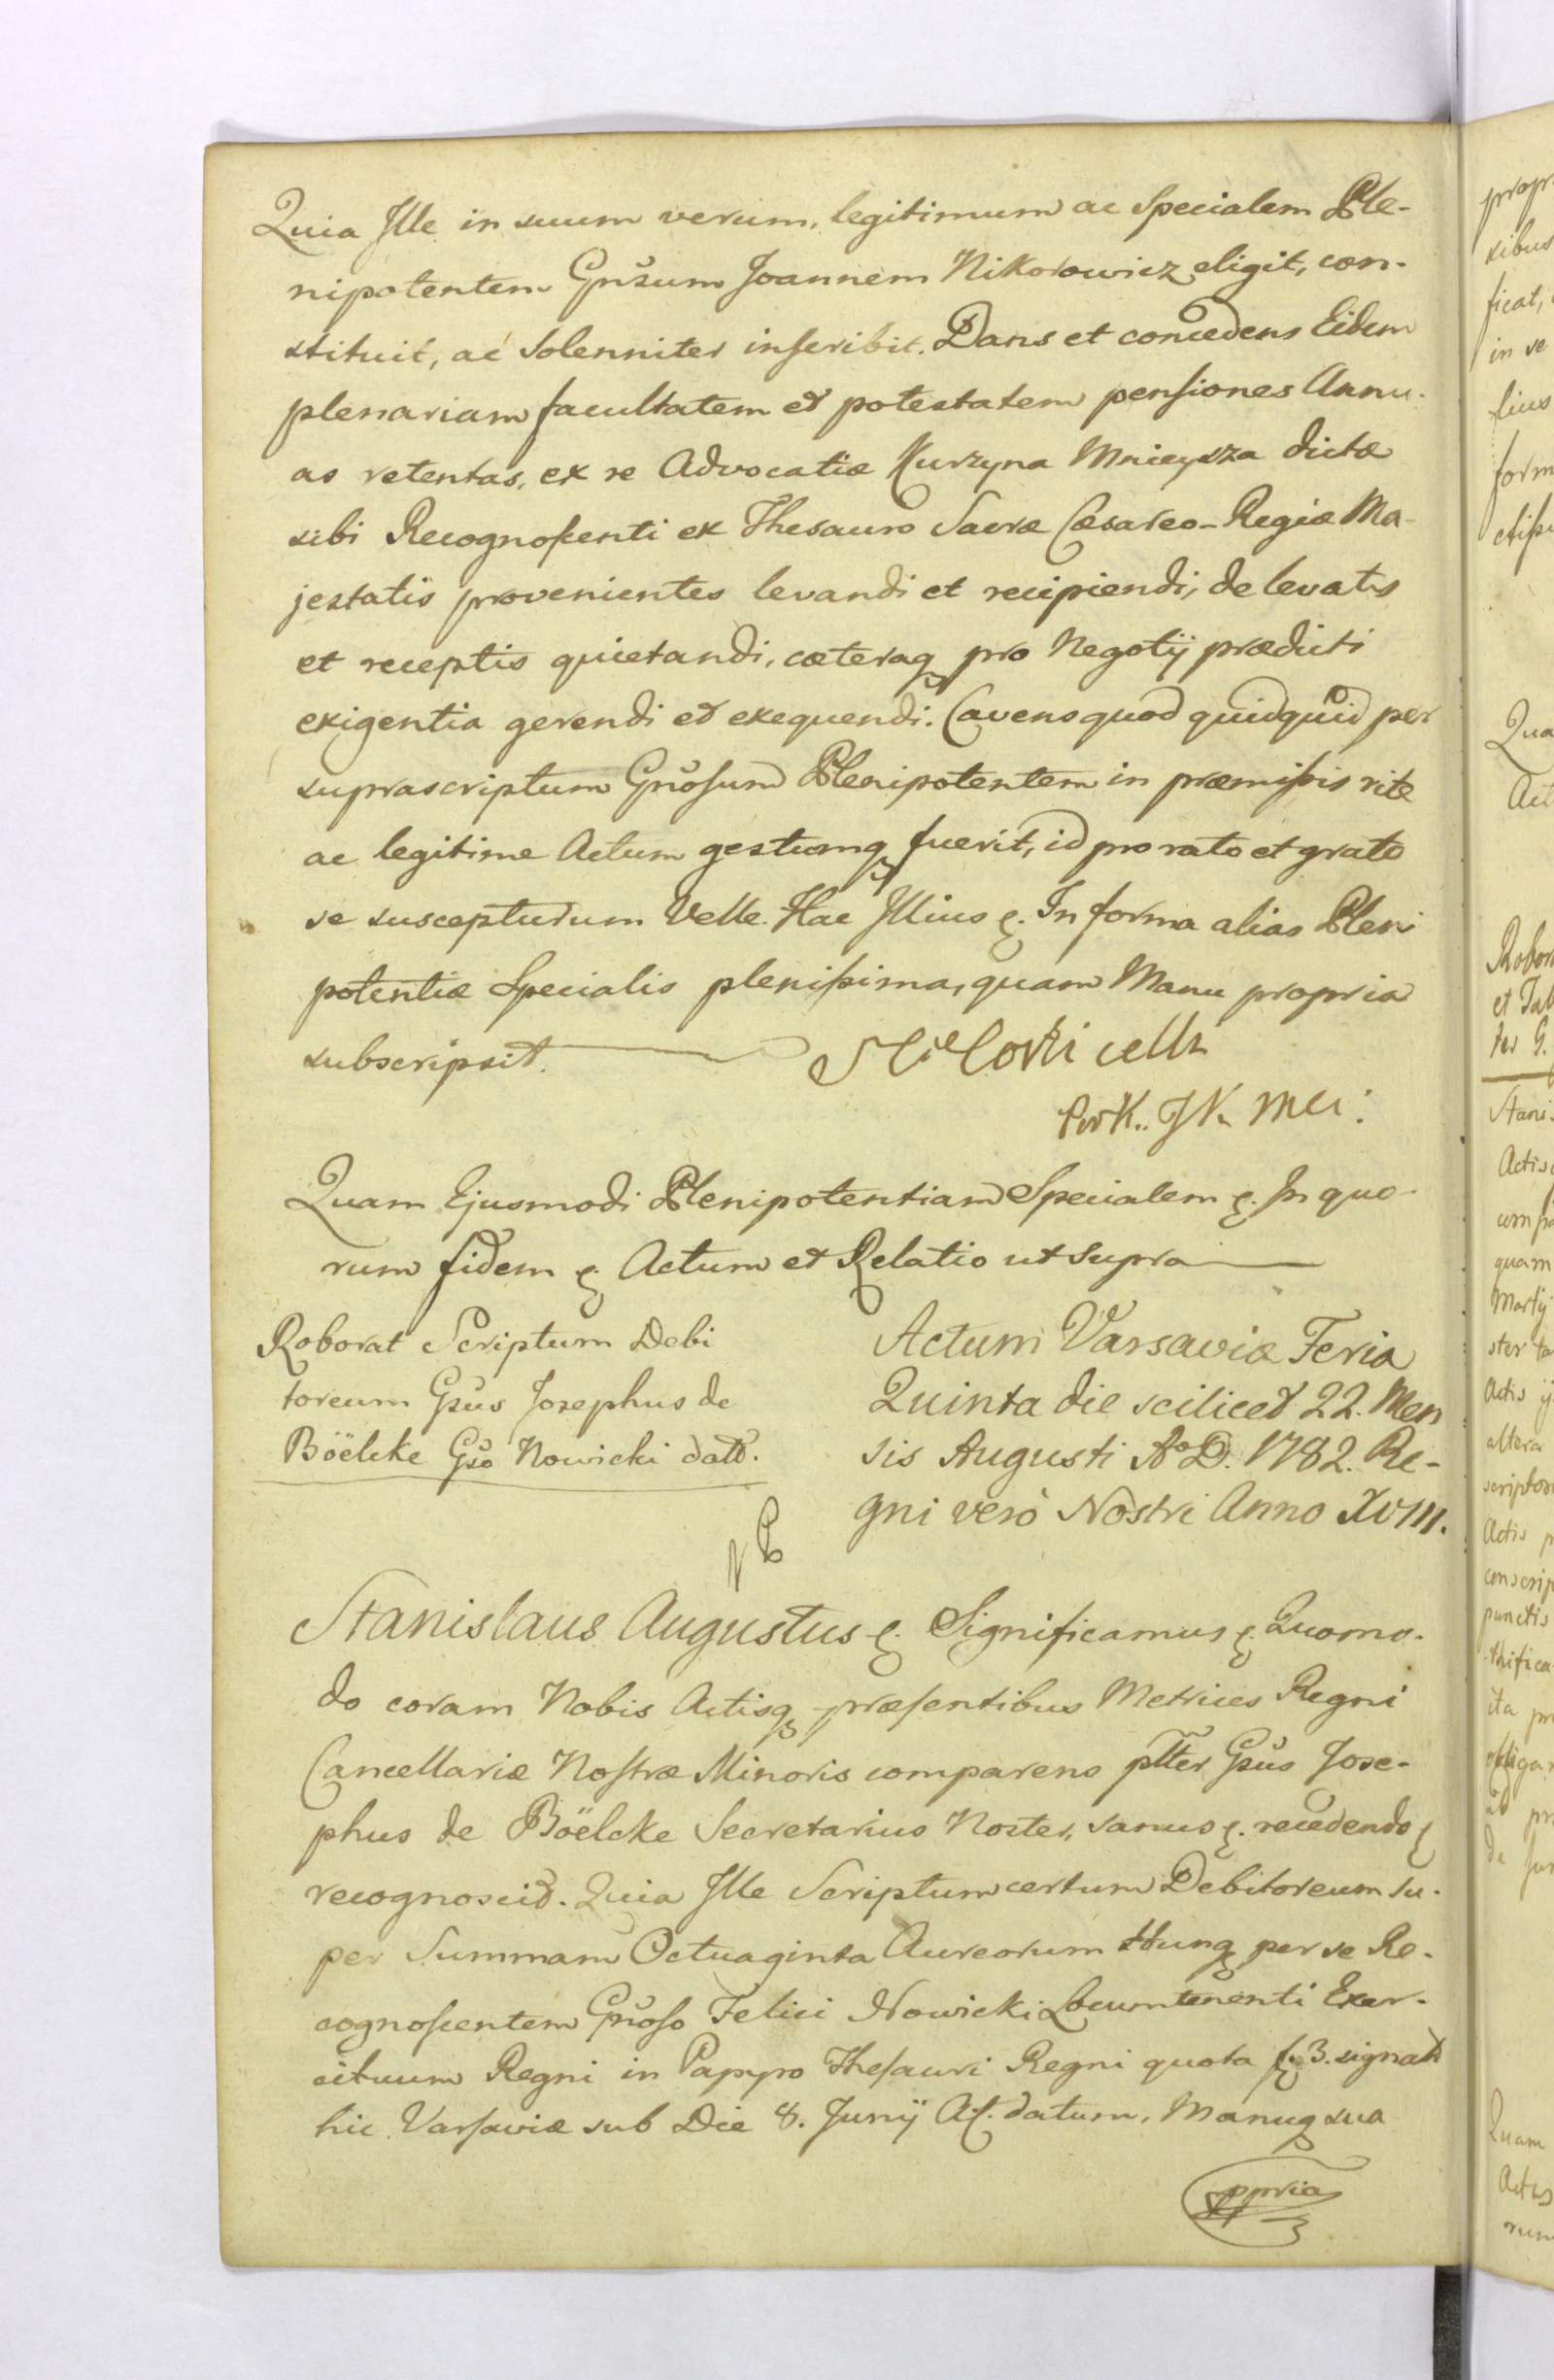 Quia Jlle in suum verum, legitimum ac Specialem Ple-
nipotentem Gnšum Joannem Nikorowicz eligit, con-
stituit, ac Solenniter inscribit. Dans et concedens Eidem
plenariam facultatem et potestatem pensiones Annu-
as retentas, ex re Advocatiæ Kurzyna Mnieysza dictæ
sibi Recognoscenti ex Thesauro Sacræ Cæsareo-Regiæ Ma-
jestatis provenientes levandi et recipiendi, de levatis
et receptis quietandi, cæteraq pro Negotij prædicti
exigentia gerendi et exequendi. Cavens quod quidquid per
suprascriptum Gnosum Plenipotentem in præmissis rite
ac legitime Actum gestumq fuerit, id pro rato et grato
se suscepturum Velle. Hac Jllius &. In forma alias Pleni
potentiæ Specialis plenissima, quam Manu propria
subscripsit.
Quam Ejusmodi Plenipotentiam Specialem &. In quo-
rum fidem & Actum et Relatio ut supra
Roborat Scriptum Debi
toreum Gsus Josephus de
Böelcke Gso Nowicki datt.
Actum Varsaviæ Feria
Quinta die scilicet 22. Men
sis Augusti Ao D. 1782. Re-
gni verò Nostri Anno XVIII.
Stanislaus Augustus &. Significamus &. Quomo-
do coram Nobis Actisq præsentibus Metrices Regni
Cancellariæ Nostræ Minoris comparens pltter Gsus Jose-
phus de Böelcke Secretarius Noster, sanus &. recedendo &
recognoscit. Quia Jlle Scriptum certum Debitoreum su-
per Summam Octuaginta Aureorum Hung per se Re-
cognoscentem Gnoso Felici Nowicki Locumtenenti Exer-
cituum Regni in Papyro Thesauri Regni quota 3. signato
hic Varsaviæ sub Die 8. Junij A. datum, Manuq sua
ppria